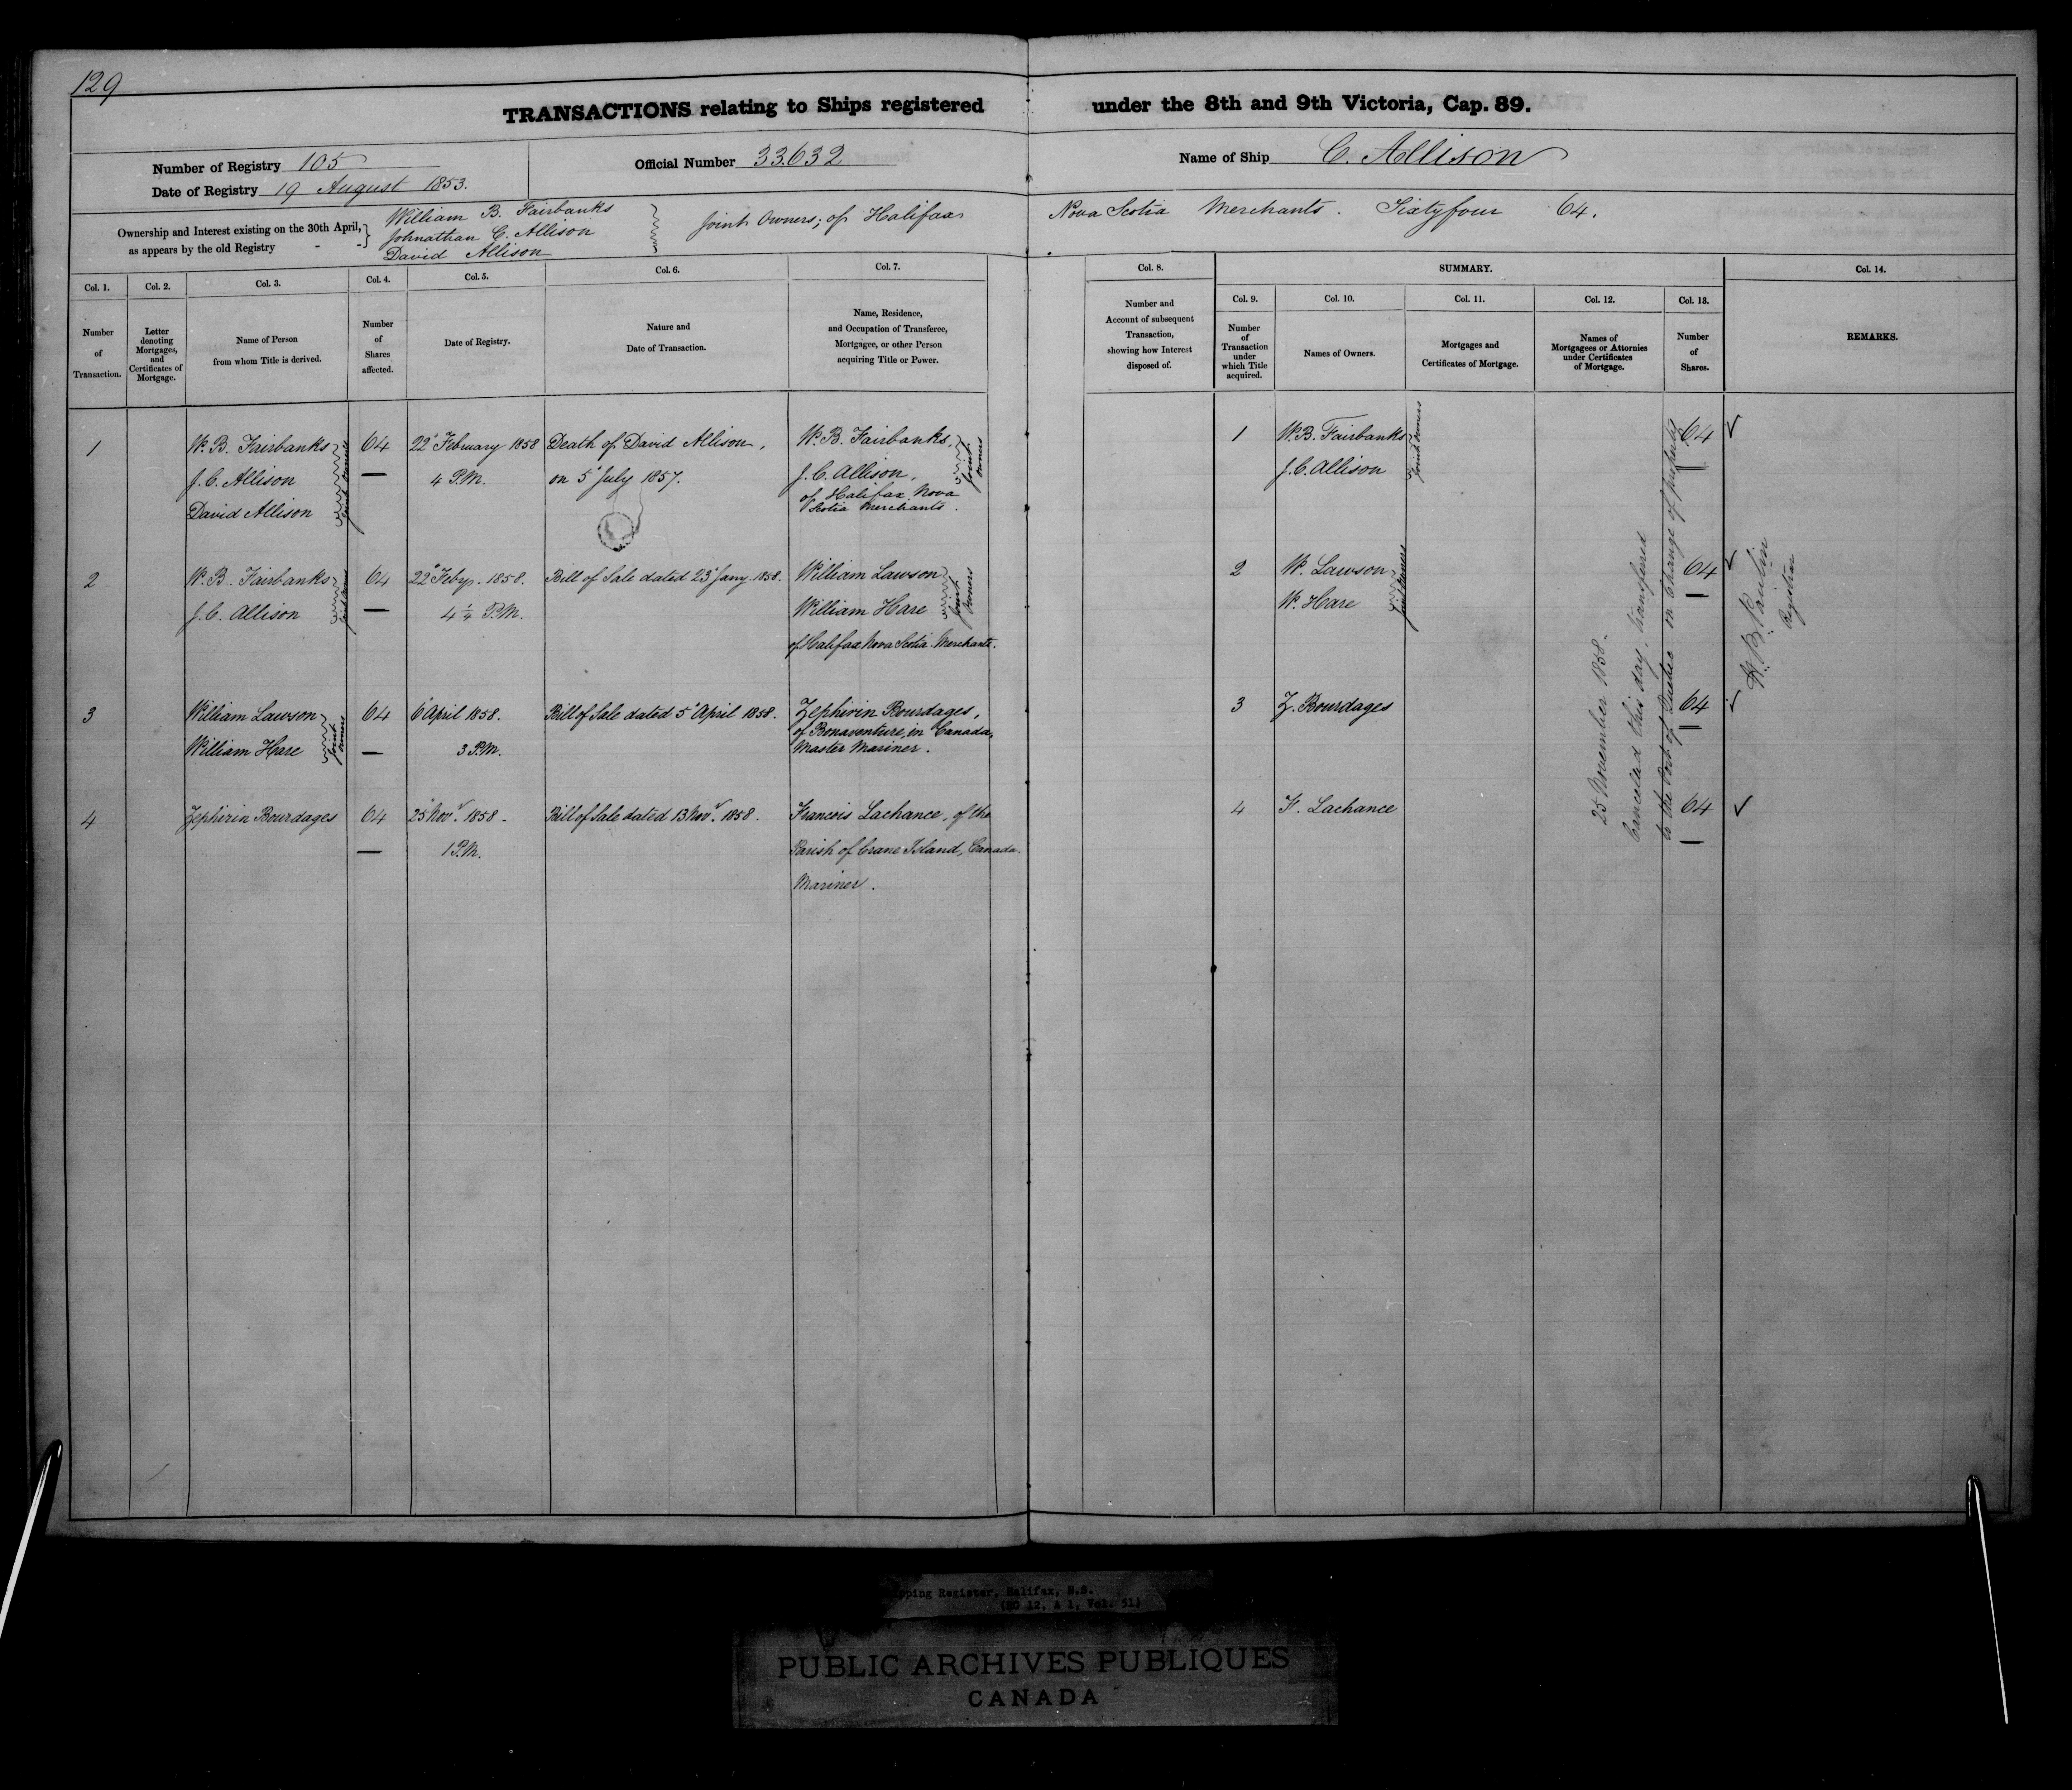 129
TRANSACTIONS relating to Ships registered under the 8th and 9th Victoria, Cap. 89.
Number of Registry 105
Date of Registry 19 August 1853.
Official Number 33632
Name of Ship C. Allison
Ownership and Interest existing on the 30th April, as appears by the old Registry - -
William B. Fairbanks
Johnathan C. Allison
David Allison
Joint Owners; of Halifax Nova Scotia Merchants. Sixtyfour 64.
Col. 1.
Number
of
Transaction.
Col. 2.
Letter
denoting
Mortgages,
and
Certificates of
Mortgage.
Col. 3.
Name of Person
from whom Title is derived.
Col. 4.
Number
of
Shares
affected.
Col. 5.
Date of Registry.
Col. 6.
Nature and
Date of Transaction.
Col. 7.
Name, Residence,
and Occupation of Transferee,
Mortgagee, or other Person
acquiring Title or Power.
Col. 8.
Number and
Account of subsequent
Transaction,
showing how Interest
disposed of.
SUMMARY.
Col. 9.
Number
of
Transaction
under
which Title
acquired.
Col. 10.
Names of Owners.
Col. 11.
Mortgages and
Certificates of Mortgage.
Col. 12.
Names of
Mortgagees or Attornies
under Certificates
of Mortgage.
Col. 13.
Number
of
Shares.
Col. 14.
REMARKS.
1
W. B. Fairbanks
J. C. Allison
David Allison
Joint Owners
64
22d February 1858
4 P.M.
Death of David Allison,
on 5th July 1857.
W. B. Fairbanks,
J. C. Allison,
Joint Owners
of Halifax Nova
Scotia Merchants.
1
W. B. Fairbanks
J. C. Allison
Joint Owners
64
2
W. B. Fairbanks
J. C. Allison
Joint Owners
64
22d Feby. 1858.
4 1/4 P.M.
Bill of Sale dated 23d Jany. 1858.
William Lawson
William Hare
Joint Owners
of Halifax Nova Scotia Merchants.
2
W. Lawson
W. Hare
Joint Owners
64
3
William Lawson
William Hare
Joint Owners
64
6 April 1858.
3 P.M.
Bill of Sale dated 5 April 1858.
Zephirin Bourdages,
of Bonaventure, in Canada,
Master Mariner.
3
Z. Bourdages
64
4
Zephirin Bourdages
64
25 Novr. 1858.
1 P.M.
Bill of Sale dated 13 Novr. 1858.
Francois Lachance, of the
Parish of Crane Island, Canada.
Mariner.
4
F. Lachance
64
25 November 1858.
Cancelled this day, transfered
to the Port of Quebec in change of property
Registrar
pping Register, Halifax, N.S.
(RG 12, A 1, Vol. 51)
PUBLIC ARCHIVES PUBLIQUES
CANADA